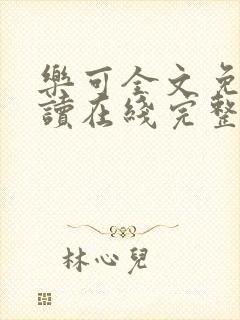 樂可全文免
讀在綫完整
林心兒